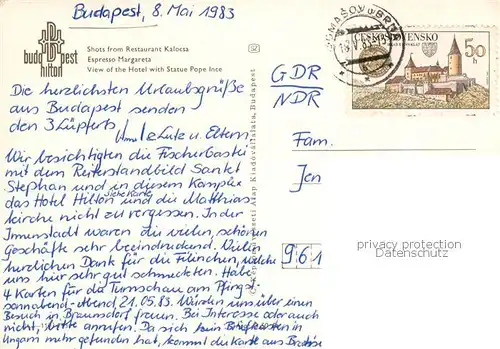 Budapest, 8. Mai 1983
budapest
hilton
Shots from Restaurant Kalocsa
Espresso Margareta
View of the Hotel with Statue Pope Ince
ČESKOSLOVENSKO
50 h
GDR
NDR
Fam.
961
protected by copyright
Datenschutz
Die herzlichsten Urlaubsgrüße
aus Budapest senden
den 3 Lüpferts!
Lutz u. Eltern,
Wir besichtigten die Fischerbastei
mit dem Reiterstandbild Sankt
Stephan und in diesem Komplex
das Hotel Hilton siehe Karte und die Matthias
kirche nicht zu vergessen. In der
Innenstadt waren die vielen, schönen
Geschäfte sehr beeindruckend. Vielen
herzlichen Dank für die Filinchen, welche
uns hier sehr gut schmeckten. Habe
4 Karten für die Turnschau am Pfingst-
sonnabend-Abend, 21.05.83. Würden uns über einen
Besuch in Braunsdorf freuen. Bei Interesse oder auch
nicht, bitte anrufen. Da sich kein Briefkasten in
Ungarn mehr gefunden hat, kommt die Karte aus